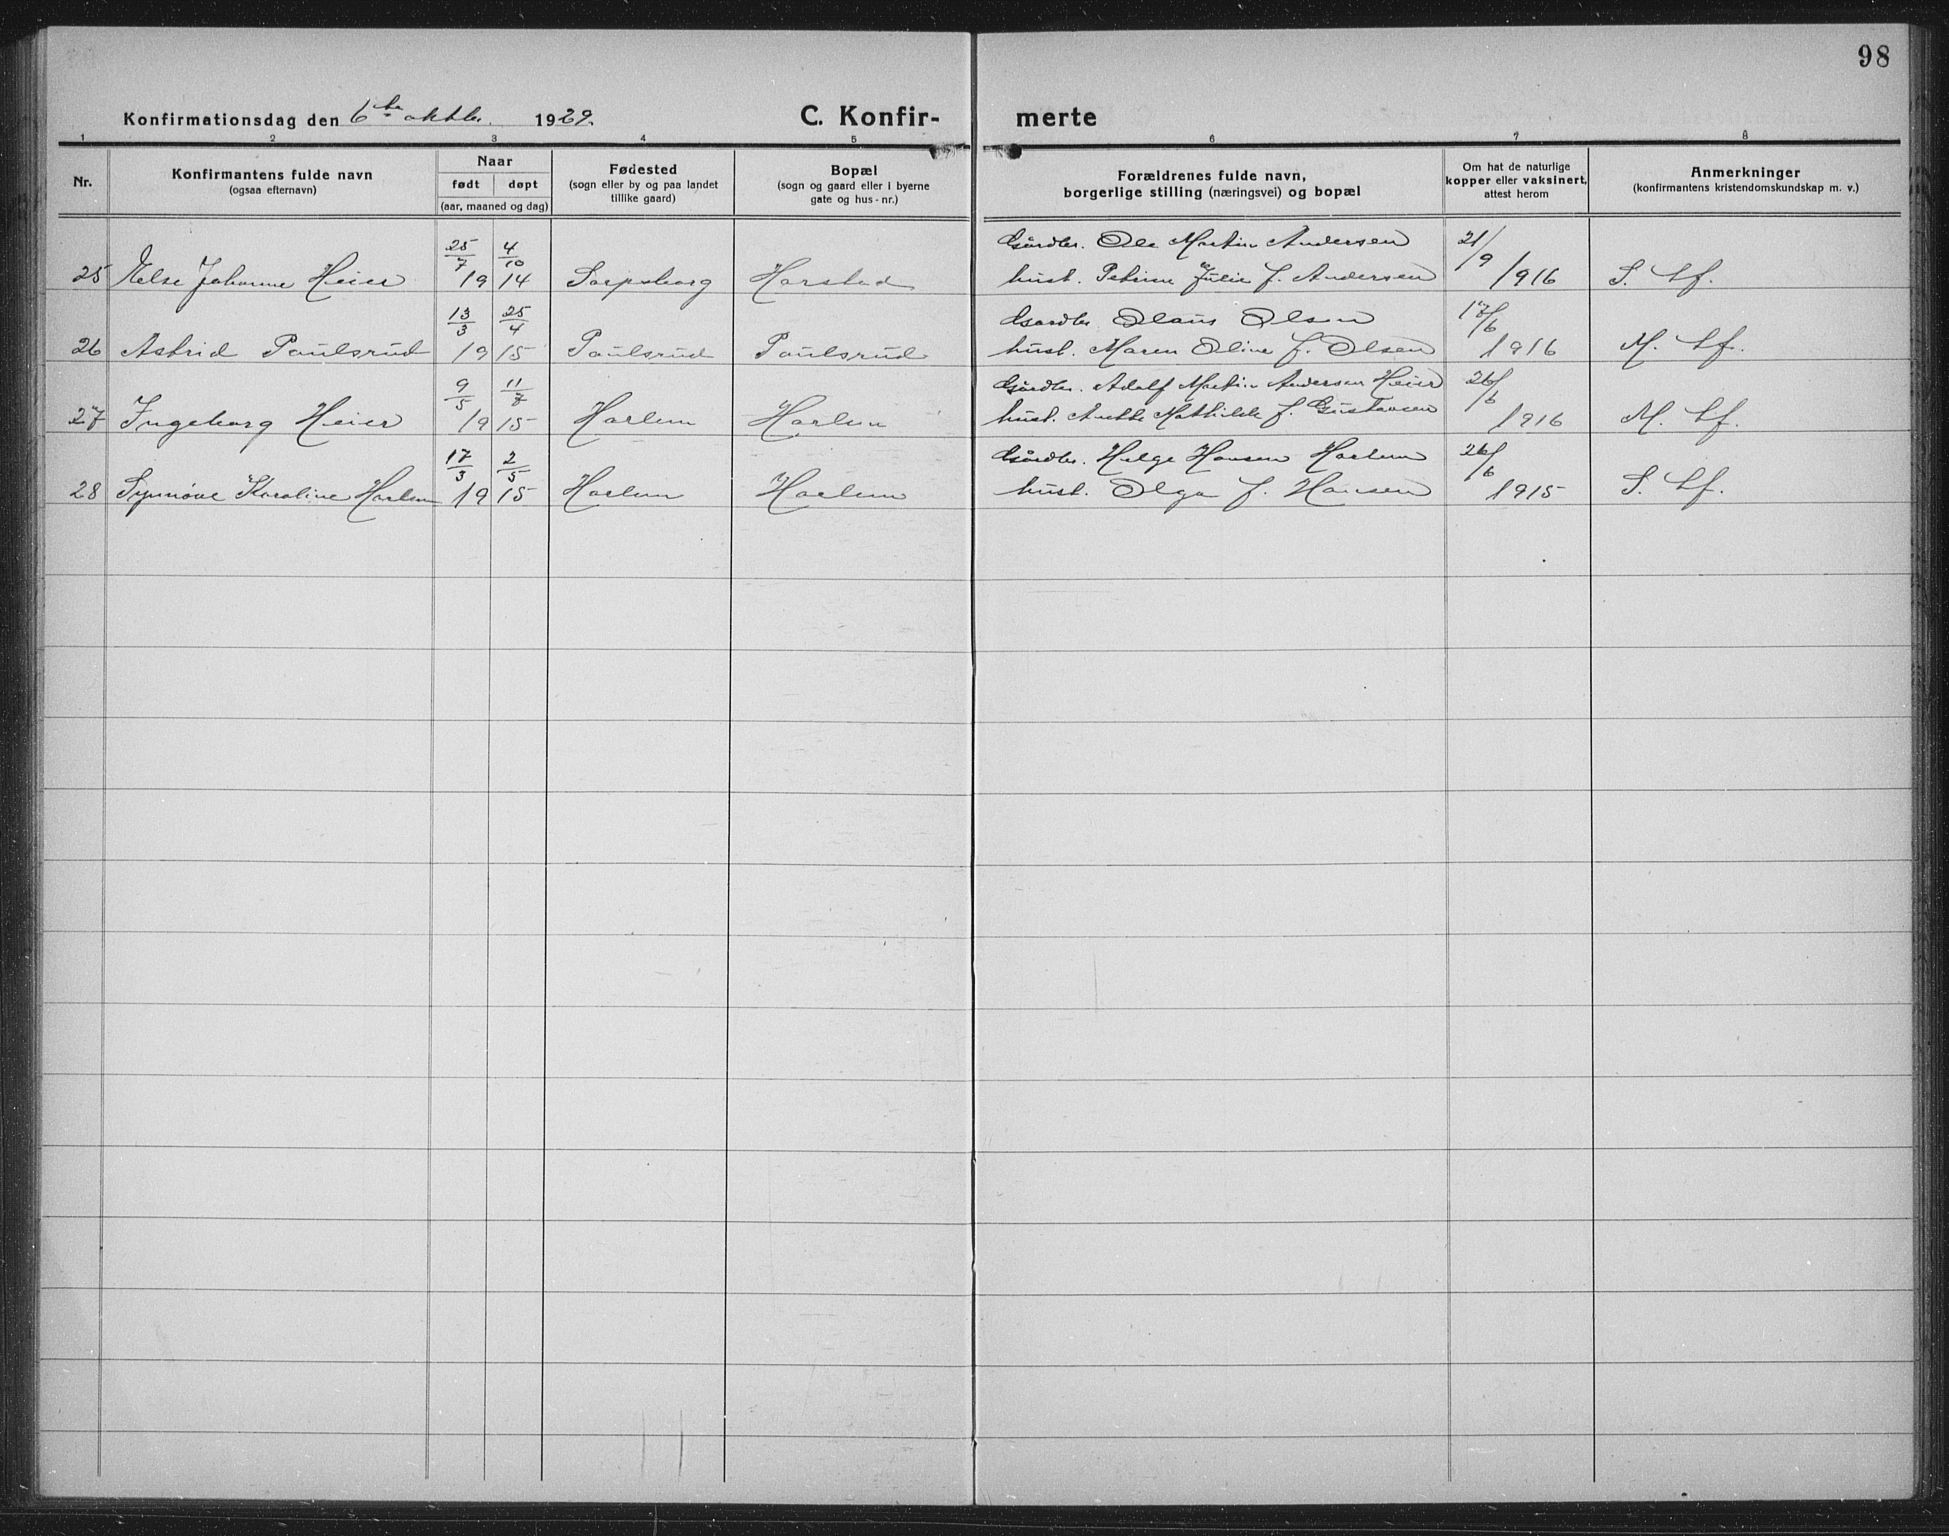 98
Konfirmationsdag den 6te oktbr. 1929. C. Konfir- merte
1 2 3 4 5 6 7 8
Nr. Konfirmantens fulde navn (ogsaa efternavn) Naar født døpt (aar, maaned og dag) Fødested (sogn eller by og paa landet tillike gaard) Bopæl (sogn og gaard eller i byerne gate og hus-nr.) Forældrenes fulde navn, borgerlige stilling (næringsvei) og bopæl Om hat de naturlige kopper eller vaksinert, attest herom Anmerkninger (konfirmantens kristendomskundskap m. v.)
25/7 4/10 Gårdbr. Ole Martin Andersen 21/9
25 Else Johanne Heier 19 14 Sarpsborg Harstad hust. Petrine Julie f. Andersen /1916 S. tf.
13/3 25/4 Gårdbr. Olaus Olsen 17/6
26 Astrid Paulsrud 19 15 Paulsrud Paulsrud hust. Maren Oline f. Olsen 1916 M. tf.
9/5 11/7 Gårdbr. Adolf Martin Andersen Heier 26/6
27 Ingeborg Heier 19 15 Harlem Harlem hust. Anette Mathilde f. Gustavsen 1916 M. tf.
17/3 2/5 Gårdbr. Helge Hansen Harlem 26/6
28 Synnøve Karoline Harlem 19 15 Harlem Harlem hust. Olga f. Hansen 1915 S. tf.